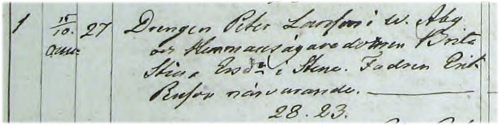 1 15/10. 27 Drengen Peter Larsson i W. Åby
och Hemmansägaredottren Brita
Stina Ersdr i Stene. Fadren Erik
Persson närvarande.
28. 23.